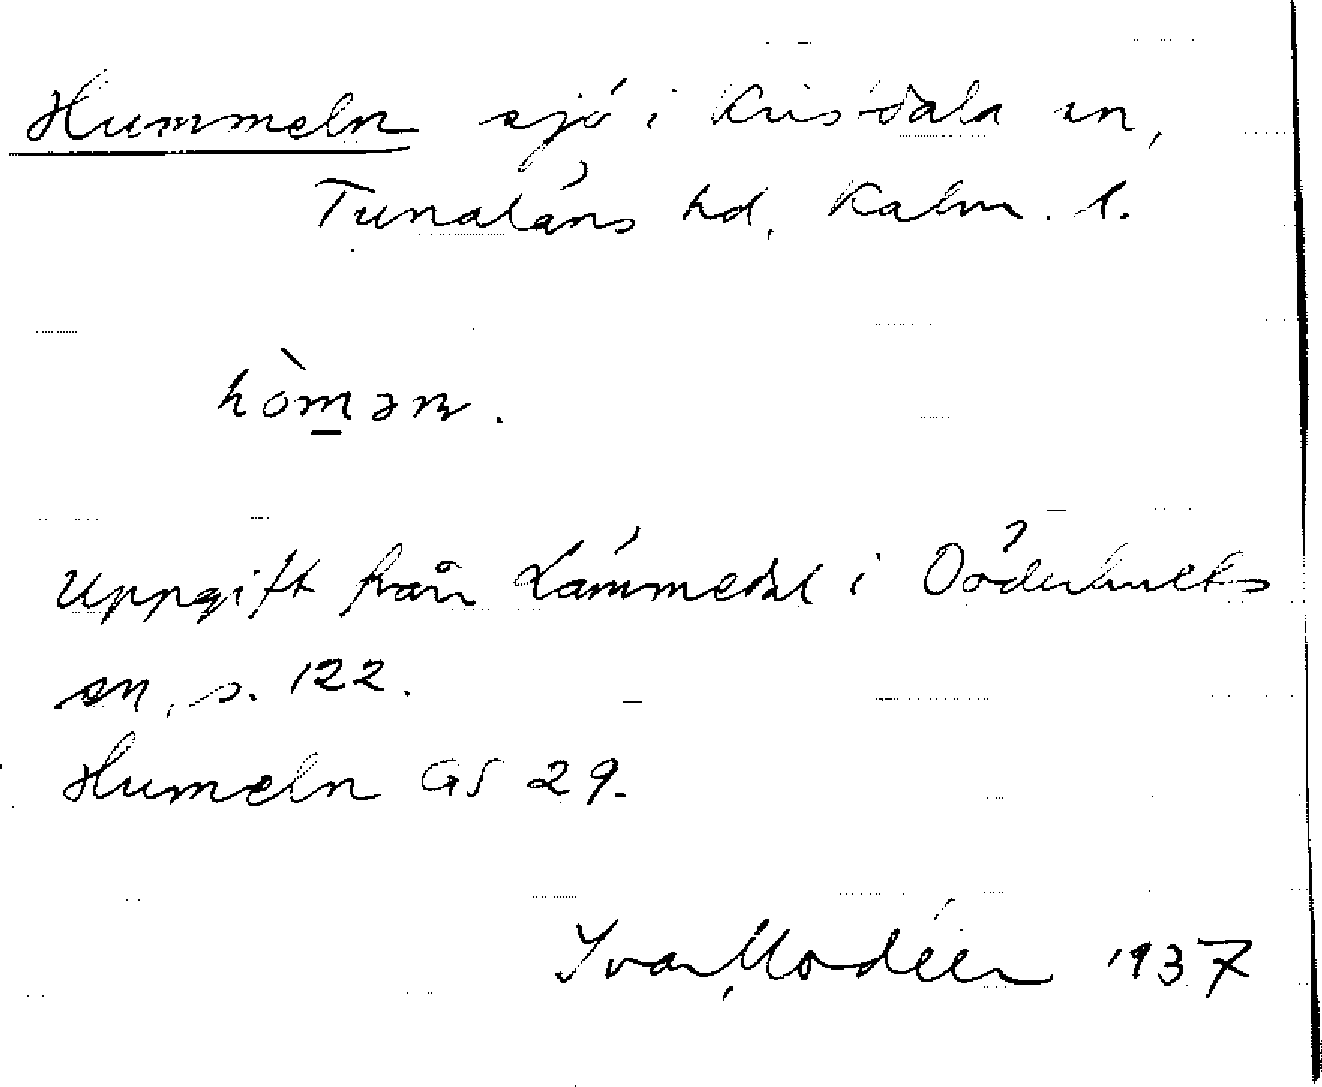 Hummeln sjö i Kristdala sn,
Tunaläns hd, Kalm. l.
hòmən.
Uppgift från Lämmedal i Döderhults
sn, s. 122.
Humeln GS 29.
Ivar Modéer 1937